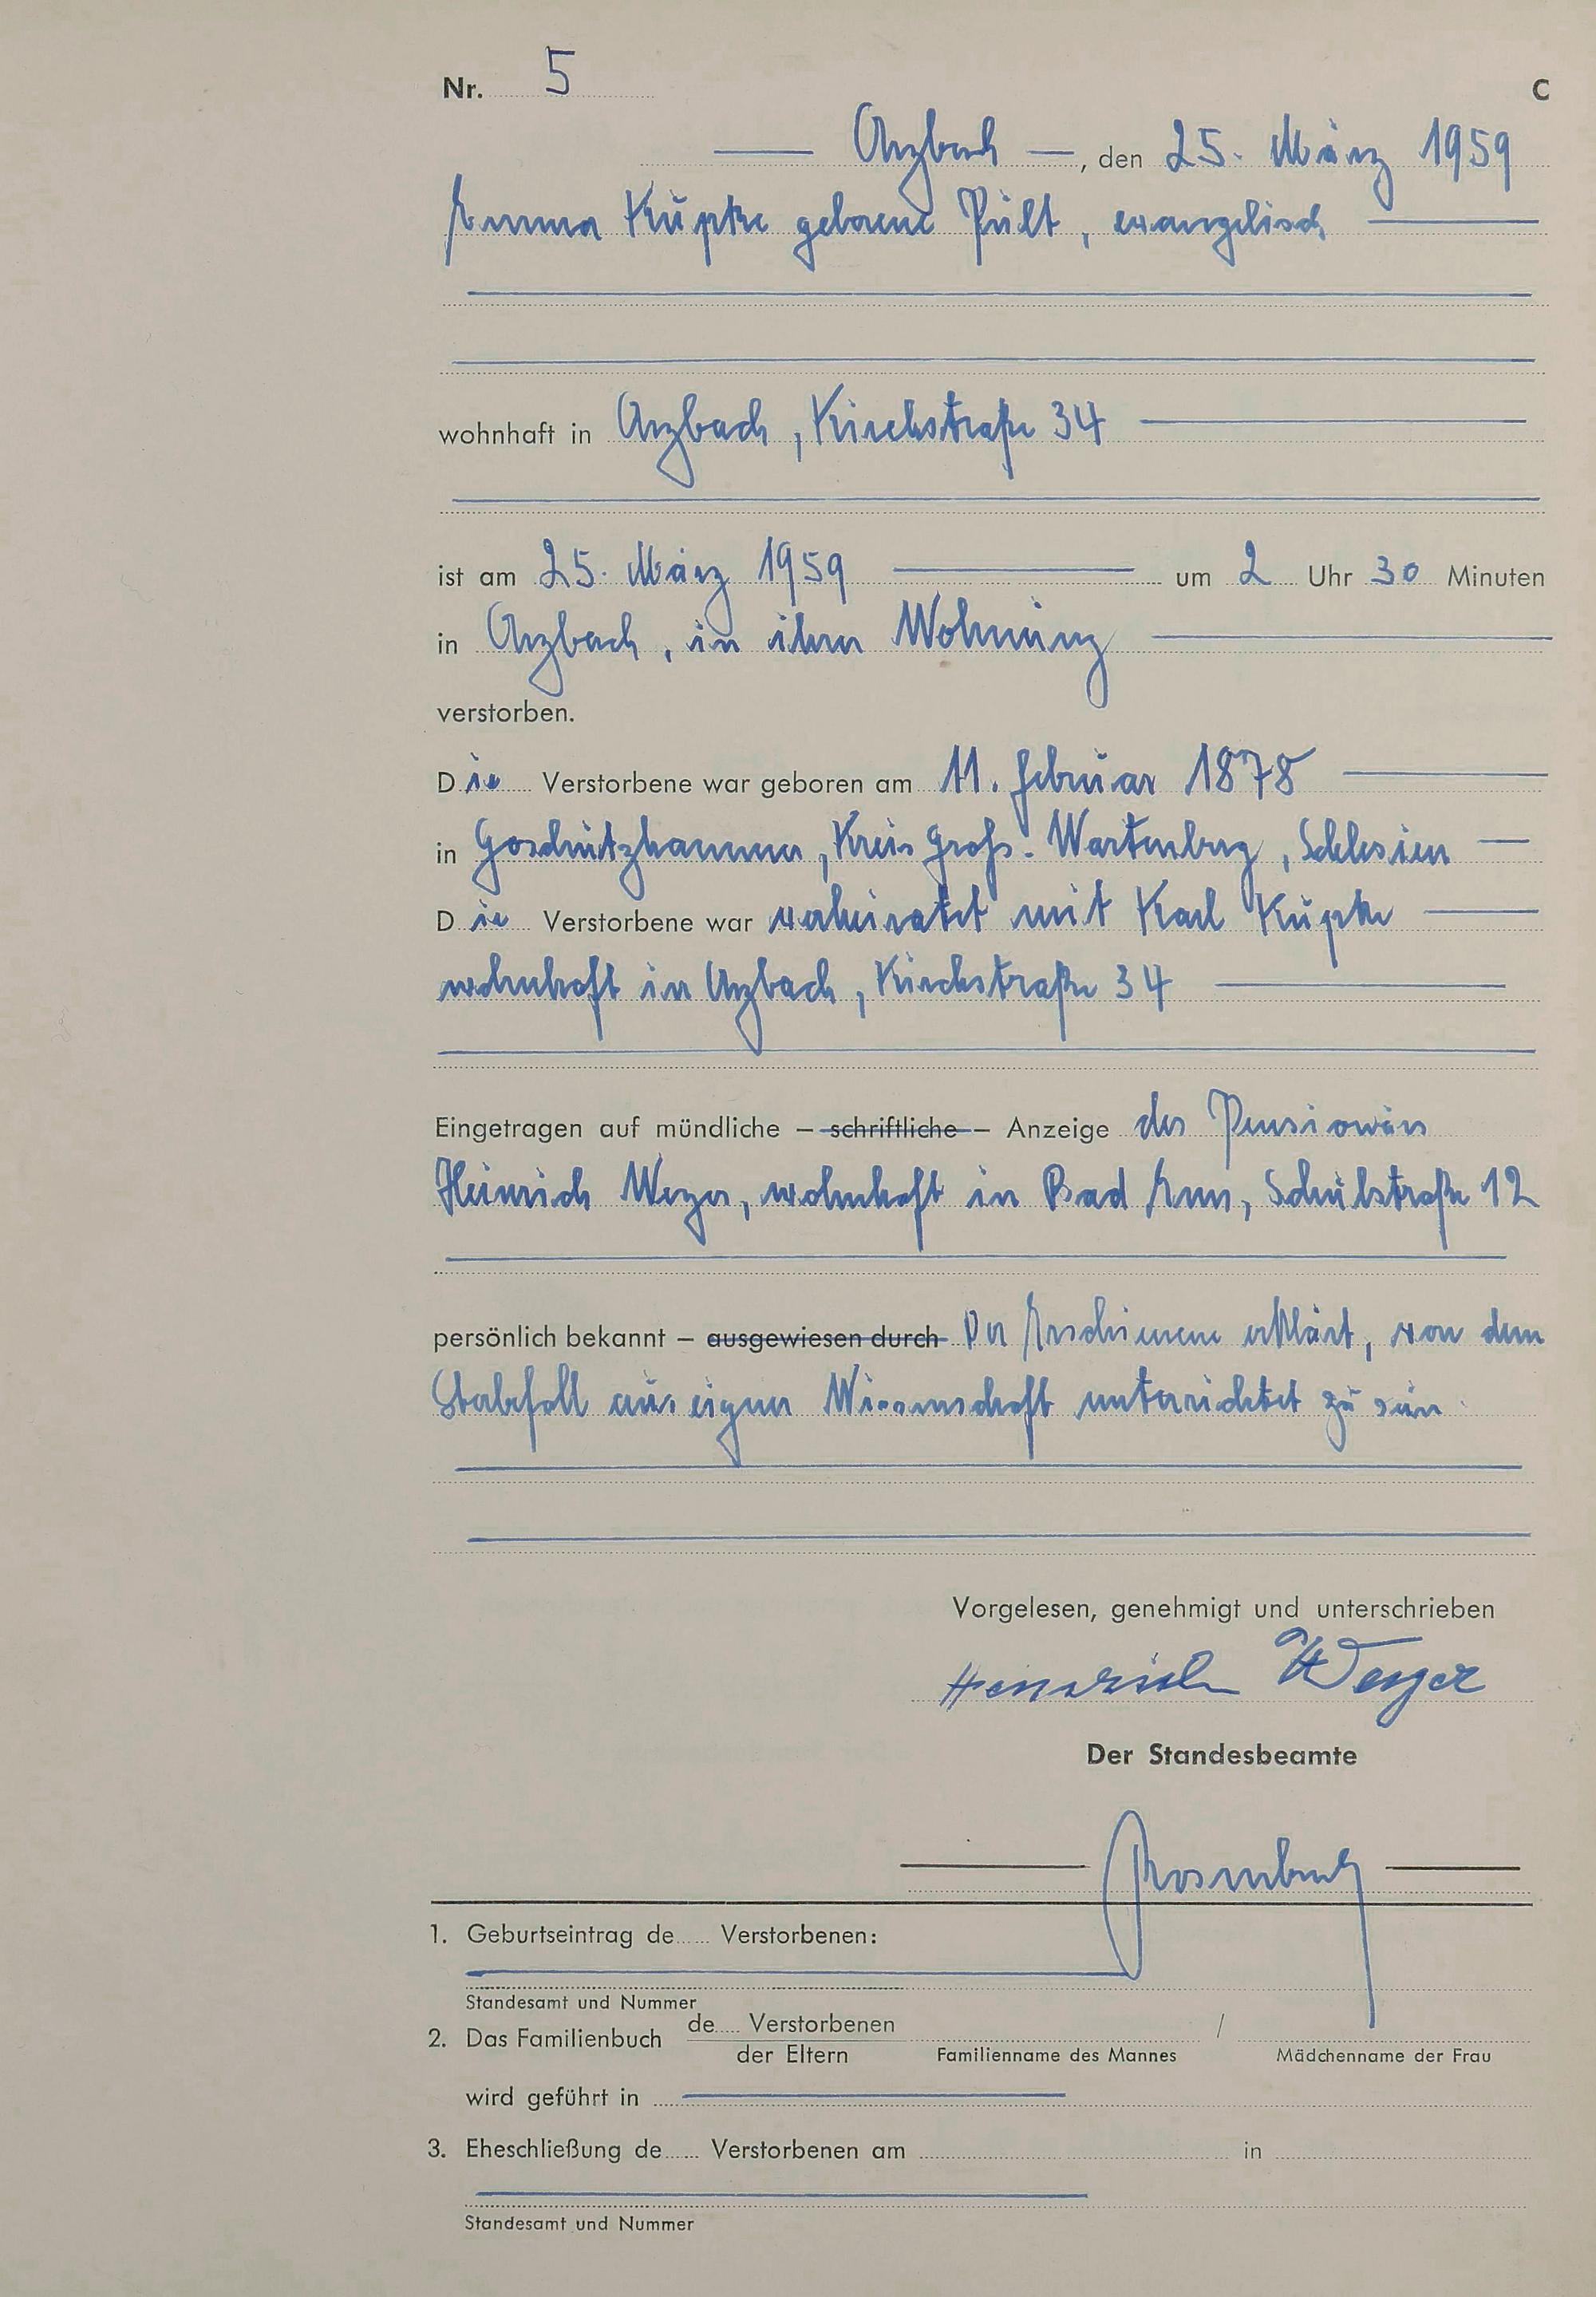 Nr. 5 C
Arzbach, den 25. März 1959
Emma Kupke geborene Pult, evangelisch
wohnhaft in Arzbach, Kirchstraße 34
ist am 25. März 1959 um 2 Uhr 30 Minuten
in Arzbach, in ihrer Wohnung
verstorben.
Die Verstorbene war geboren am 11. Februar 1878
in Goschützhammer, Kreis Groß-Wartenberg, Schlesien
Die Verstorbene war verheiratet mit Karl Kupke
wohnhaft in Arzbach, Kirchstraße 34
Eingetragen auf mündliche – schriftliche – Anzeige des Pensionärs
Heinrich Weyer, wohnhaft in Bad Ems, Schulstraße 12
persönlich bekannt – ausgewiesen durch Der Erschienene erklärt, von dem
Sterbefall aus eigener Wissenschaft unterrichtet zu sein.
Vorgelesen, genehmigt und unterschrieben
Heinrich Weyer
Der Standesbeamte
1. Geburtseintrag de Verstorbenen:
Standesamt und Nummer
2. Das Familienbuch de Verstorbenen /
der Eltern Familienname des Mannes Mädchenname der Frau
wird geführt in
3. Eheschließung de Verstorbenen am in
Standesamt und Nummer